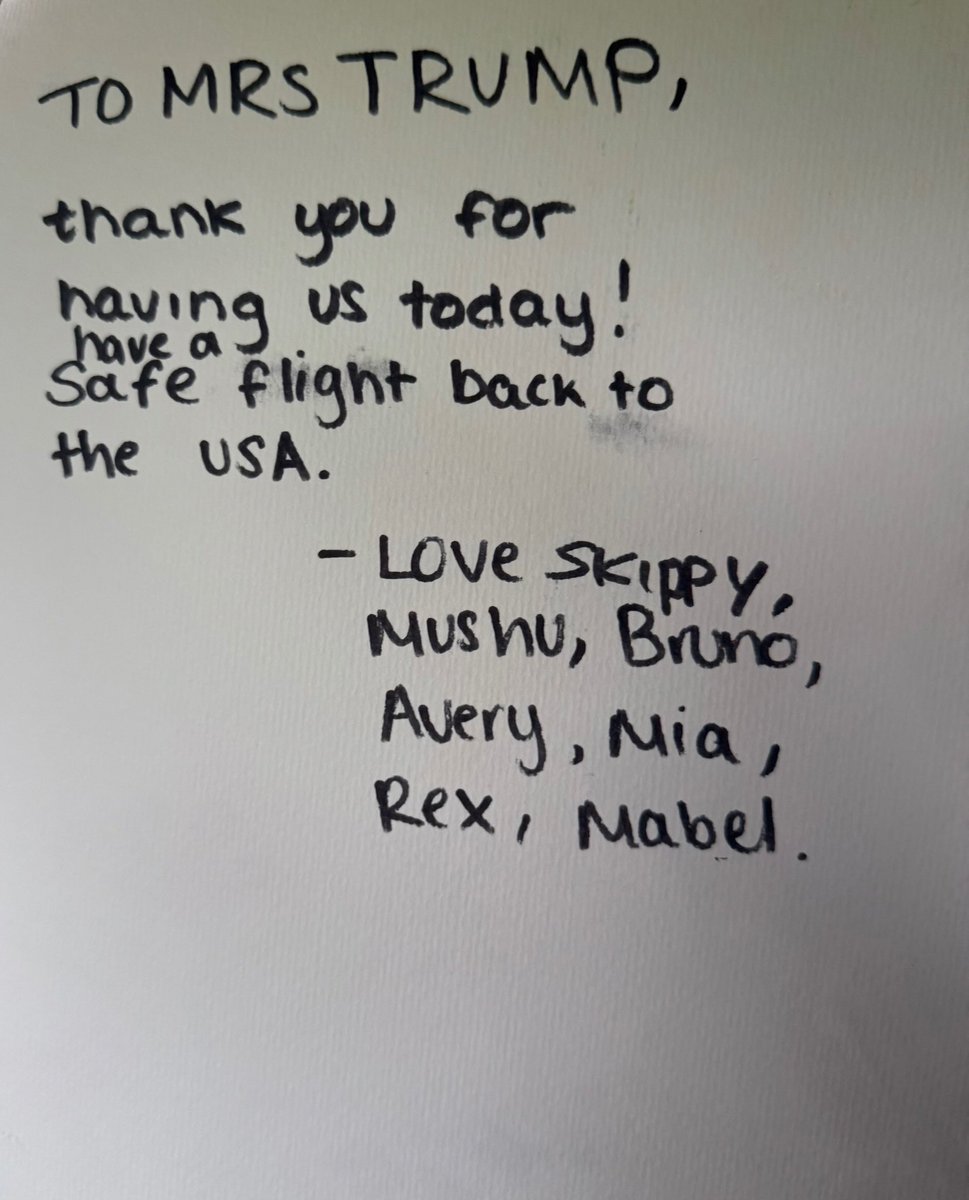 TO MRS TRUMP,
thank you for
having us today!
have a
Safe flight back to
the USA.
- Love Skippy,
Mushu, Bruno,
Avery, Mia,
Rex, Mabel.